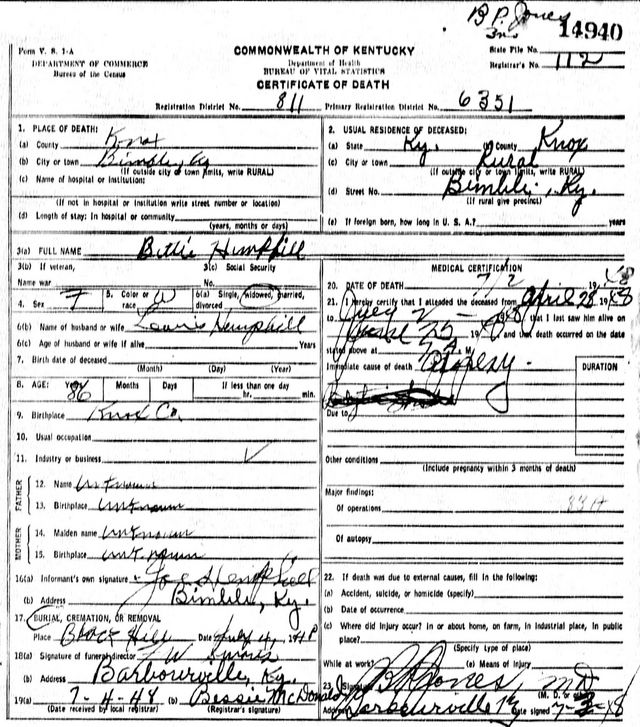 B P. Jones
14940
Form V. S. 1-A
DEPARTMENT OF COMMERCE
Bureau of the Census
COMMONWEALTH OF KENTUCKY
Department of Health
BUREAU OF VITAL STATISTICS
CERTIFICATE OF DEATH
State File No.
Registrar's No. 112
Registration District No. 811 Primary Registration District No. 6351
1. PLACE OF DEATH:
(a) County Knox
(b) City or town Bimble, Ky
(If outside city or town limits, write RURAL)
(c) Name of hospital or institution:
(If not in hospital or institution write street number or location)
(d) Length of stay: In hospital or community
(years, months or days)
2. USUAL RESIDENCE OF DECEASED:
(a) State Ky. (b) County Knox
(c) City or town Rural
(If outside city or town limits, write RURAL)
(d) Street No. Bimble, Ky.
(If rural give precinct)
(e) If foreign born, how long in U. S. A.? years
3(a) FULL NAME Bettie Hemphill
3(b) If veteran,
Name war
3(c) Social Security
No.
4. Sex F 5. Color or race W 6(a) Single, widowed, married, divorced
6(b) Name of husband or wife Lewis Hemphill
6(c) Age of husband or wife if alive Years
7. Birth date of deceased
(Month) (Day) (Year)
8. AGE: Years 86 Months Days If less than one day
hr. min.
9. Birthplace Knox Co.
10. Usual occupation
11. Industry or business
FATHER
12. Name unknown
13. Birthplace unknown
MOTHER
14. Maiden name unknown
15. Birthplace unknown
16(a) Informant's own signature Joe Hemphill
(b) Address Bimble, Ky.
17. BURIAL, CREMATION, OR REMOVAL
Place Hill Date July 4, 194
18(a) Signature of funeral director
(b) Address Barbourville, Ky.
19(a) 7-4-48 (b) Bessie McDonald
(Date received by local registrar) (Registrar's signature)
MEDICAL CERTIFICATION
20. DATE OF DEATH 7/2 1948
21. I hereby certify that I attended the deceased from April 28 1948
to July 2 - 1948 that I last saw him alive on
June 25 1948 and that death occurred on the date
stated above at 7 A. M.
Immediate cause of death
DURATION
Due to
Other conditions
(Include pregnancy within 3 months of death)
Major findings:
Of operations
Of autopsy
22. If death was due to external causes, fill in the following:
(a) Accident, suicide, or homicide (specify)
(b) Date of occurrence
(c) Where did injury occur? In or about home, on farm, in industrial place, in public
place?
(Specify type of place)
While at work? (e) Means of Injury
23. Signature B P Jones MD
(M. D. or other)
Address Barbourville Ky Date signed 7-3-48